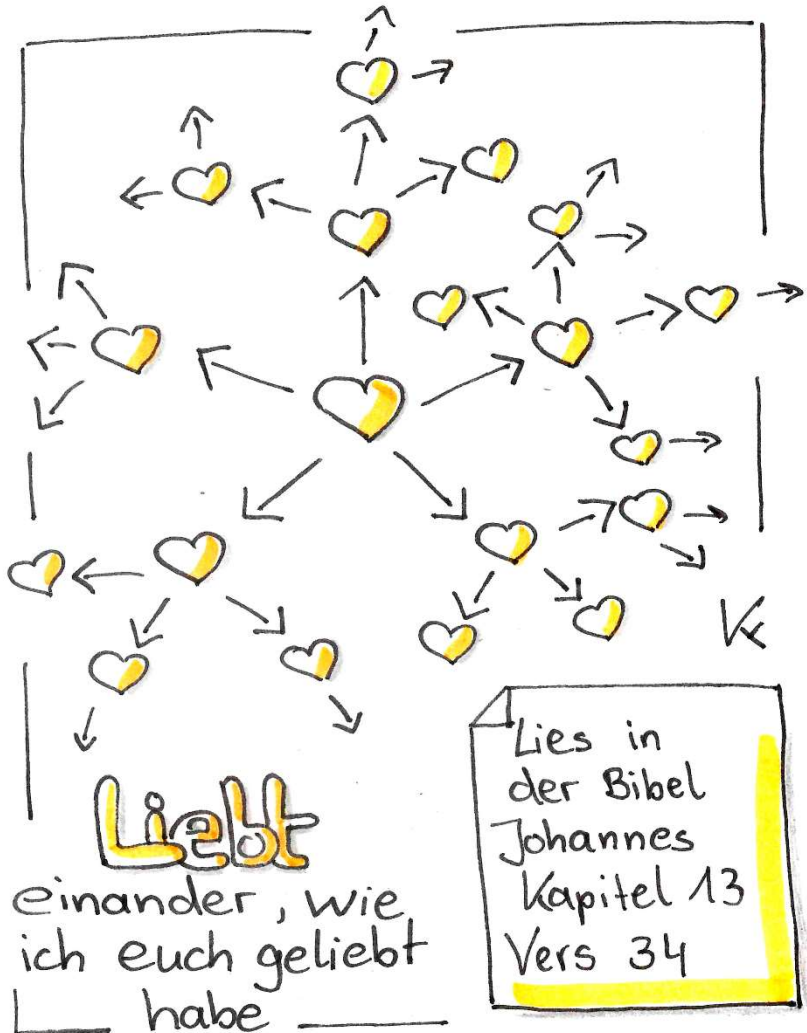 Liebt
einander, wie
ich euch geliebt
habe
Lies in
der Bibel
Johannes
Kapitel 13
Vers 34